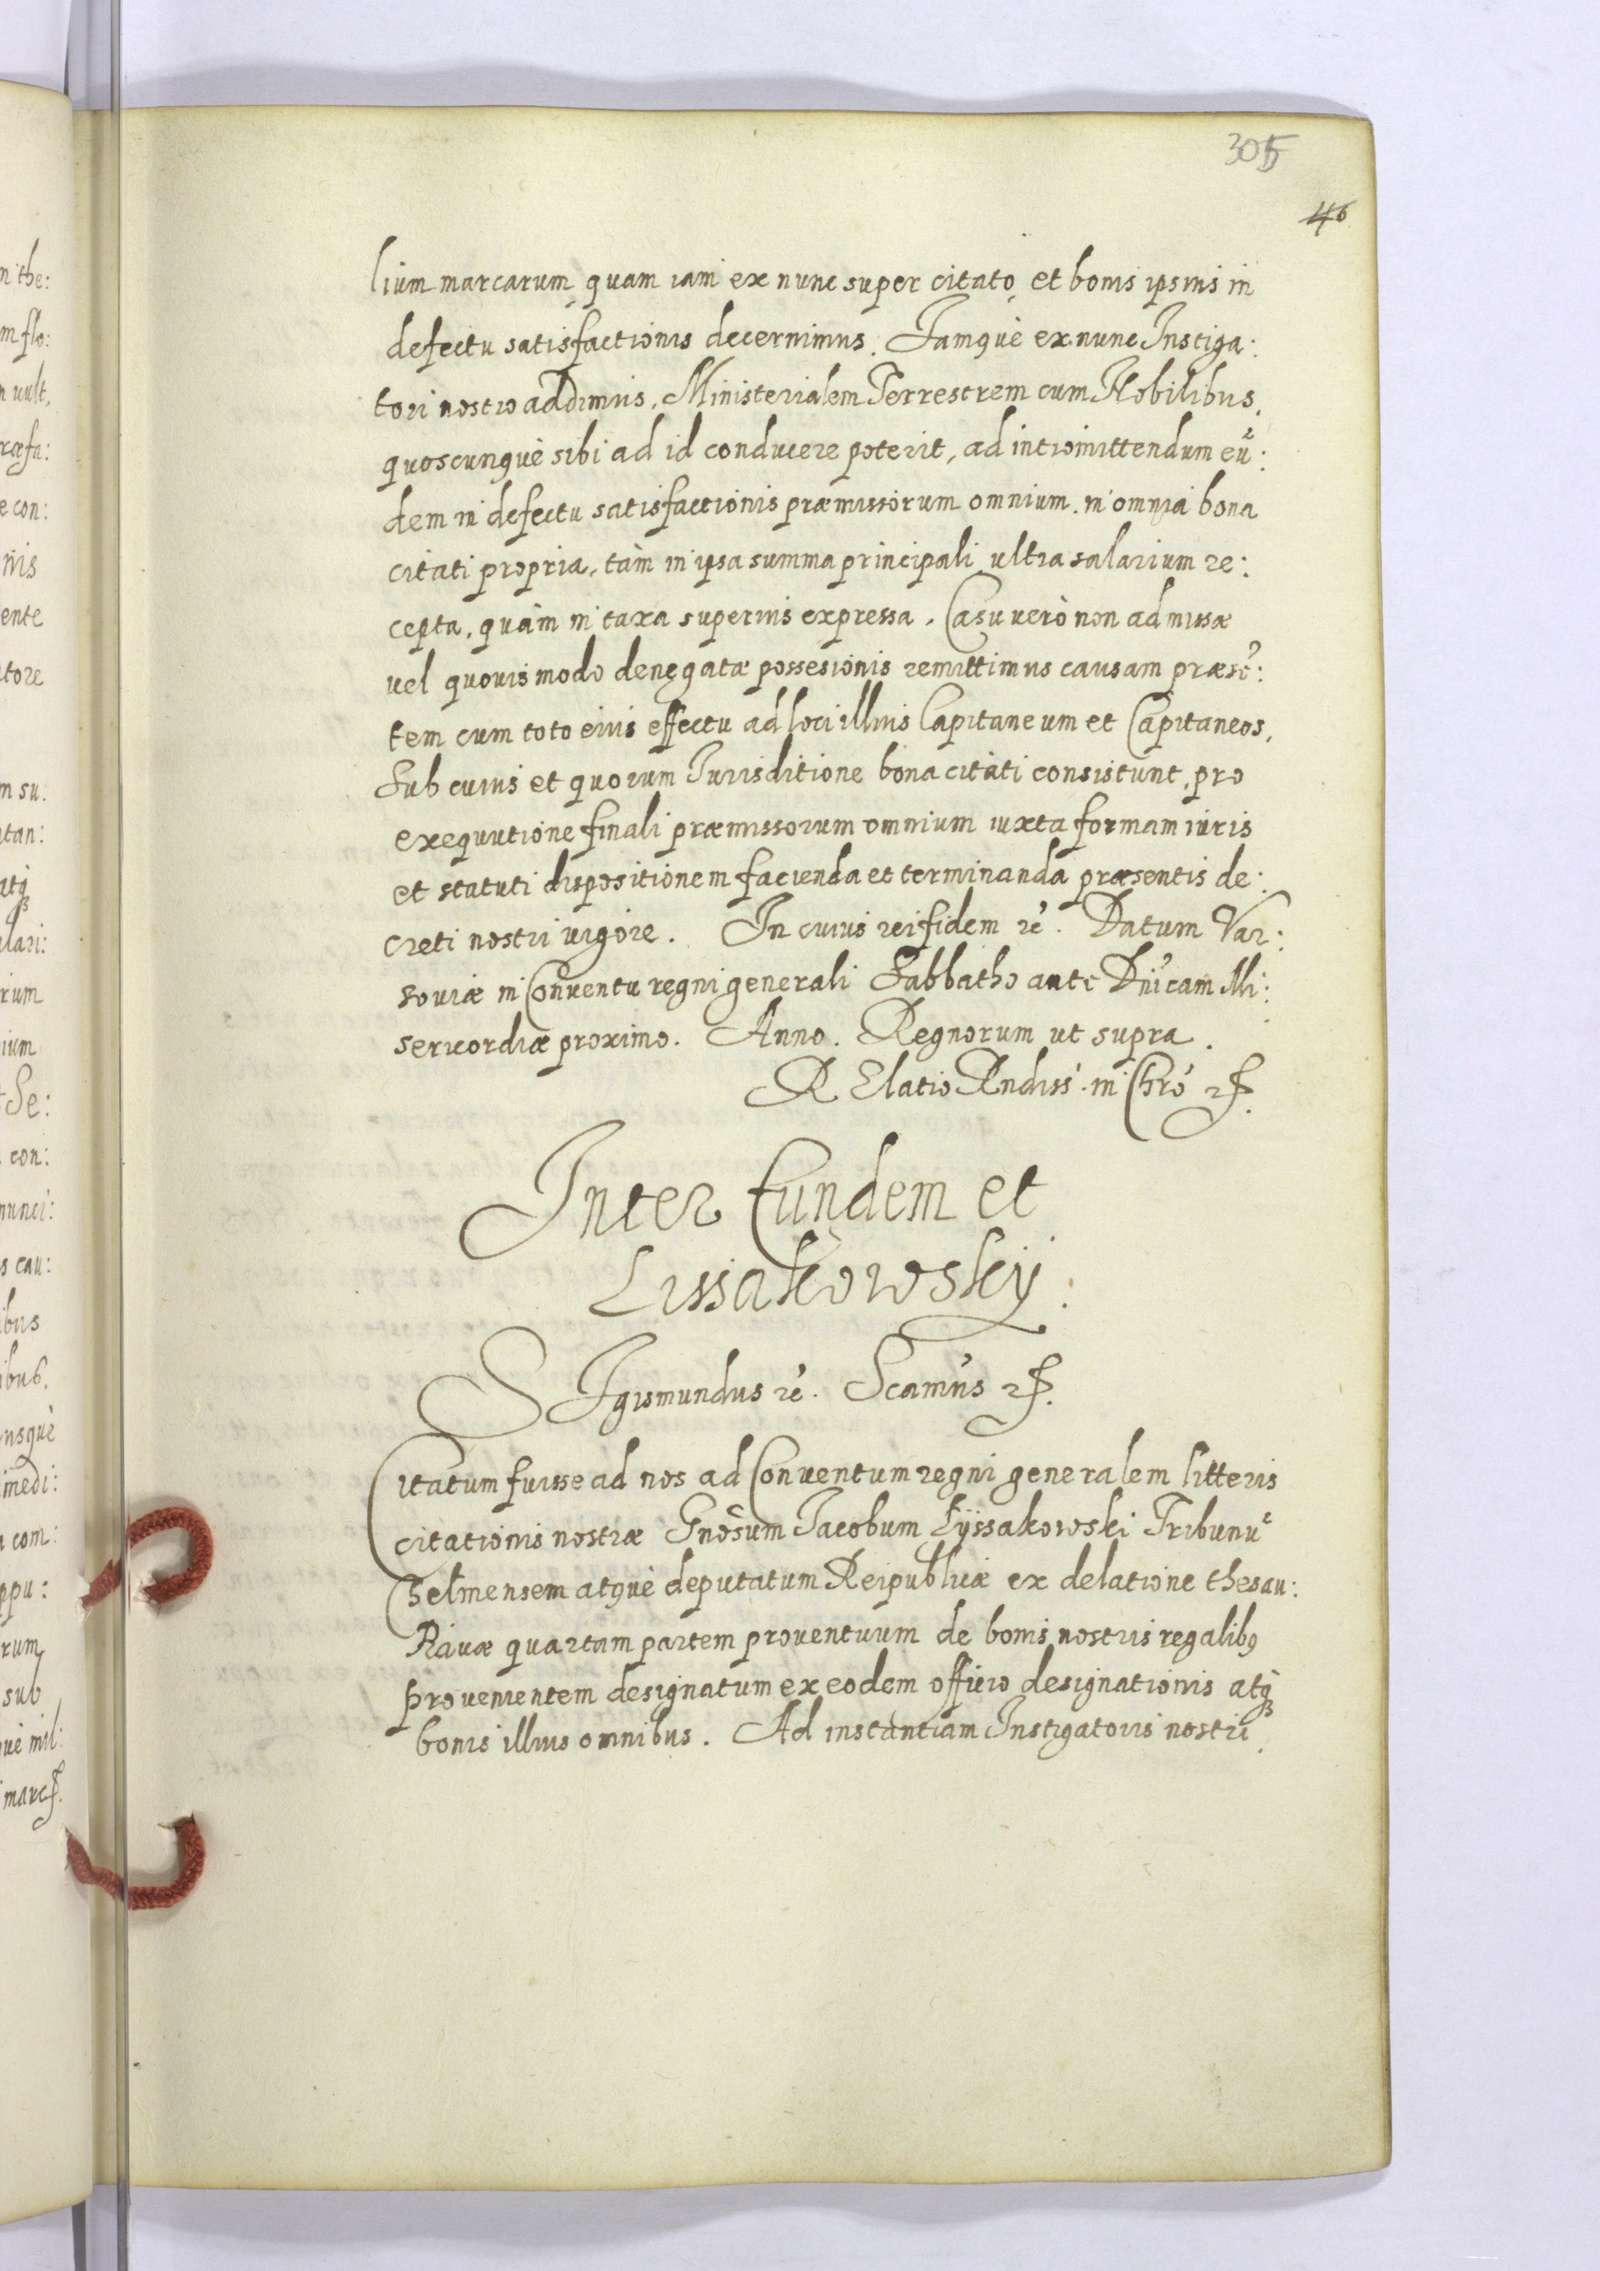 305
46
lium marcarum quam iam ex nunc super citato et bonis ipsius in
defectu satisfactionis decernimus. Iamquè ex nunc Instiga:
tori nostro addimus, Ministerialem Terrestrem cum Nobilibus,
quoscunquè sibi ad id conducere poterit, ad intromittendum eũ:
dem in defectu satisfactionis præmissorum omnium. in omnia bona
citati propria, tàm in ipsa summa principali ultra salarium re:
cepta, quàm in taxa superius expressa. Casu verò non admissæ
vel quouis modo denegatæ possesionis remittimus causam præsẽ:
tem cum toto eius effectu ad loci illius Capitaneum et Capitaneos,
Sub cuius et quorum Iurisditione bona citati consistunt, pro
exequutione finali præmissorum omnium iuxta formam iuris
et statuti dispositionem facienda et terminanda præsentis de:
creti nostri vigore. In cuius rei fidem rẽ. Datum Var:
souiæ in Conuentu regni generali Sabbatho ante Dnĩcam Mi:
sericordiæ proximo. Anno. Regnorum ut supra.
RElatio Rndiss̃ in Chrõ
Inter Eundem et
Lissakowskÿ:
SIgismundus rẽ. Scamũs
Citatum fuisse ad nos ad Conuentum regni generalem litteris
citationis nostræ Gnõsum Iacobum Lÿssakowski Tribunũ
Chelmensem atquè deputatum Reipublicæ ex delatione thesau:
Rauæ quartam partem prouentuum de bonis nostris regalibꝰ
prouenientem designatum ex eodem officio designationis atq̃
bonis illius omnibus. Ad instantiam Instigatoris nostri
n the:
m flo:
n vult,
ræfa:
e con:
nis
ente
tore
m su.
tan:
atq̃
lari:
rum
ium
Se:
con:
nunci:
s cau:
ibus
ibus.
nsquè
medi:
com:
ppu:
rum
sub
uè mil:
marc